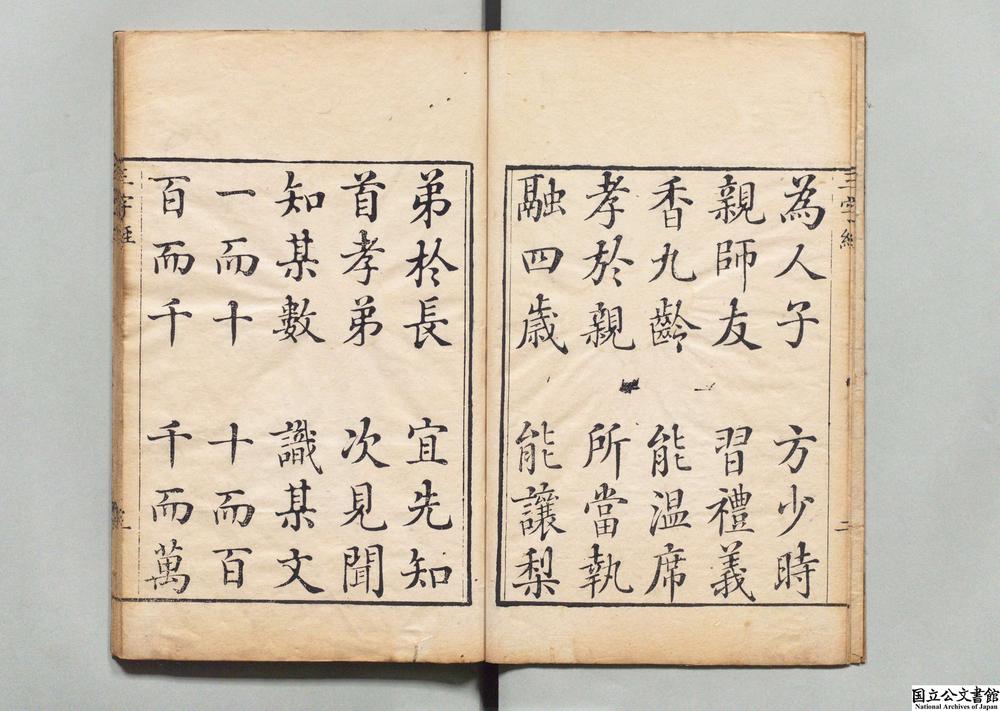 為人子 方少時
親師友 習禮義
香九齡 能温席
孝於親 所當執
融四歲 能讓梨
弟於長 宜先知
首孝弟 次見聞
知某數 識某文
一而十 十而百
百而千 千而萬
三字經
二
三字經
国立公文書館
National Archives of Japan